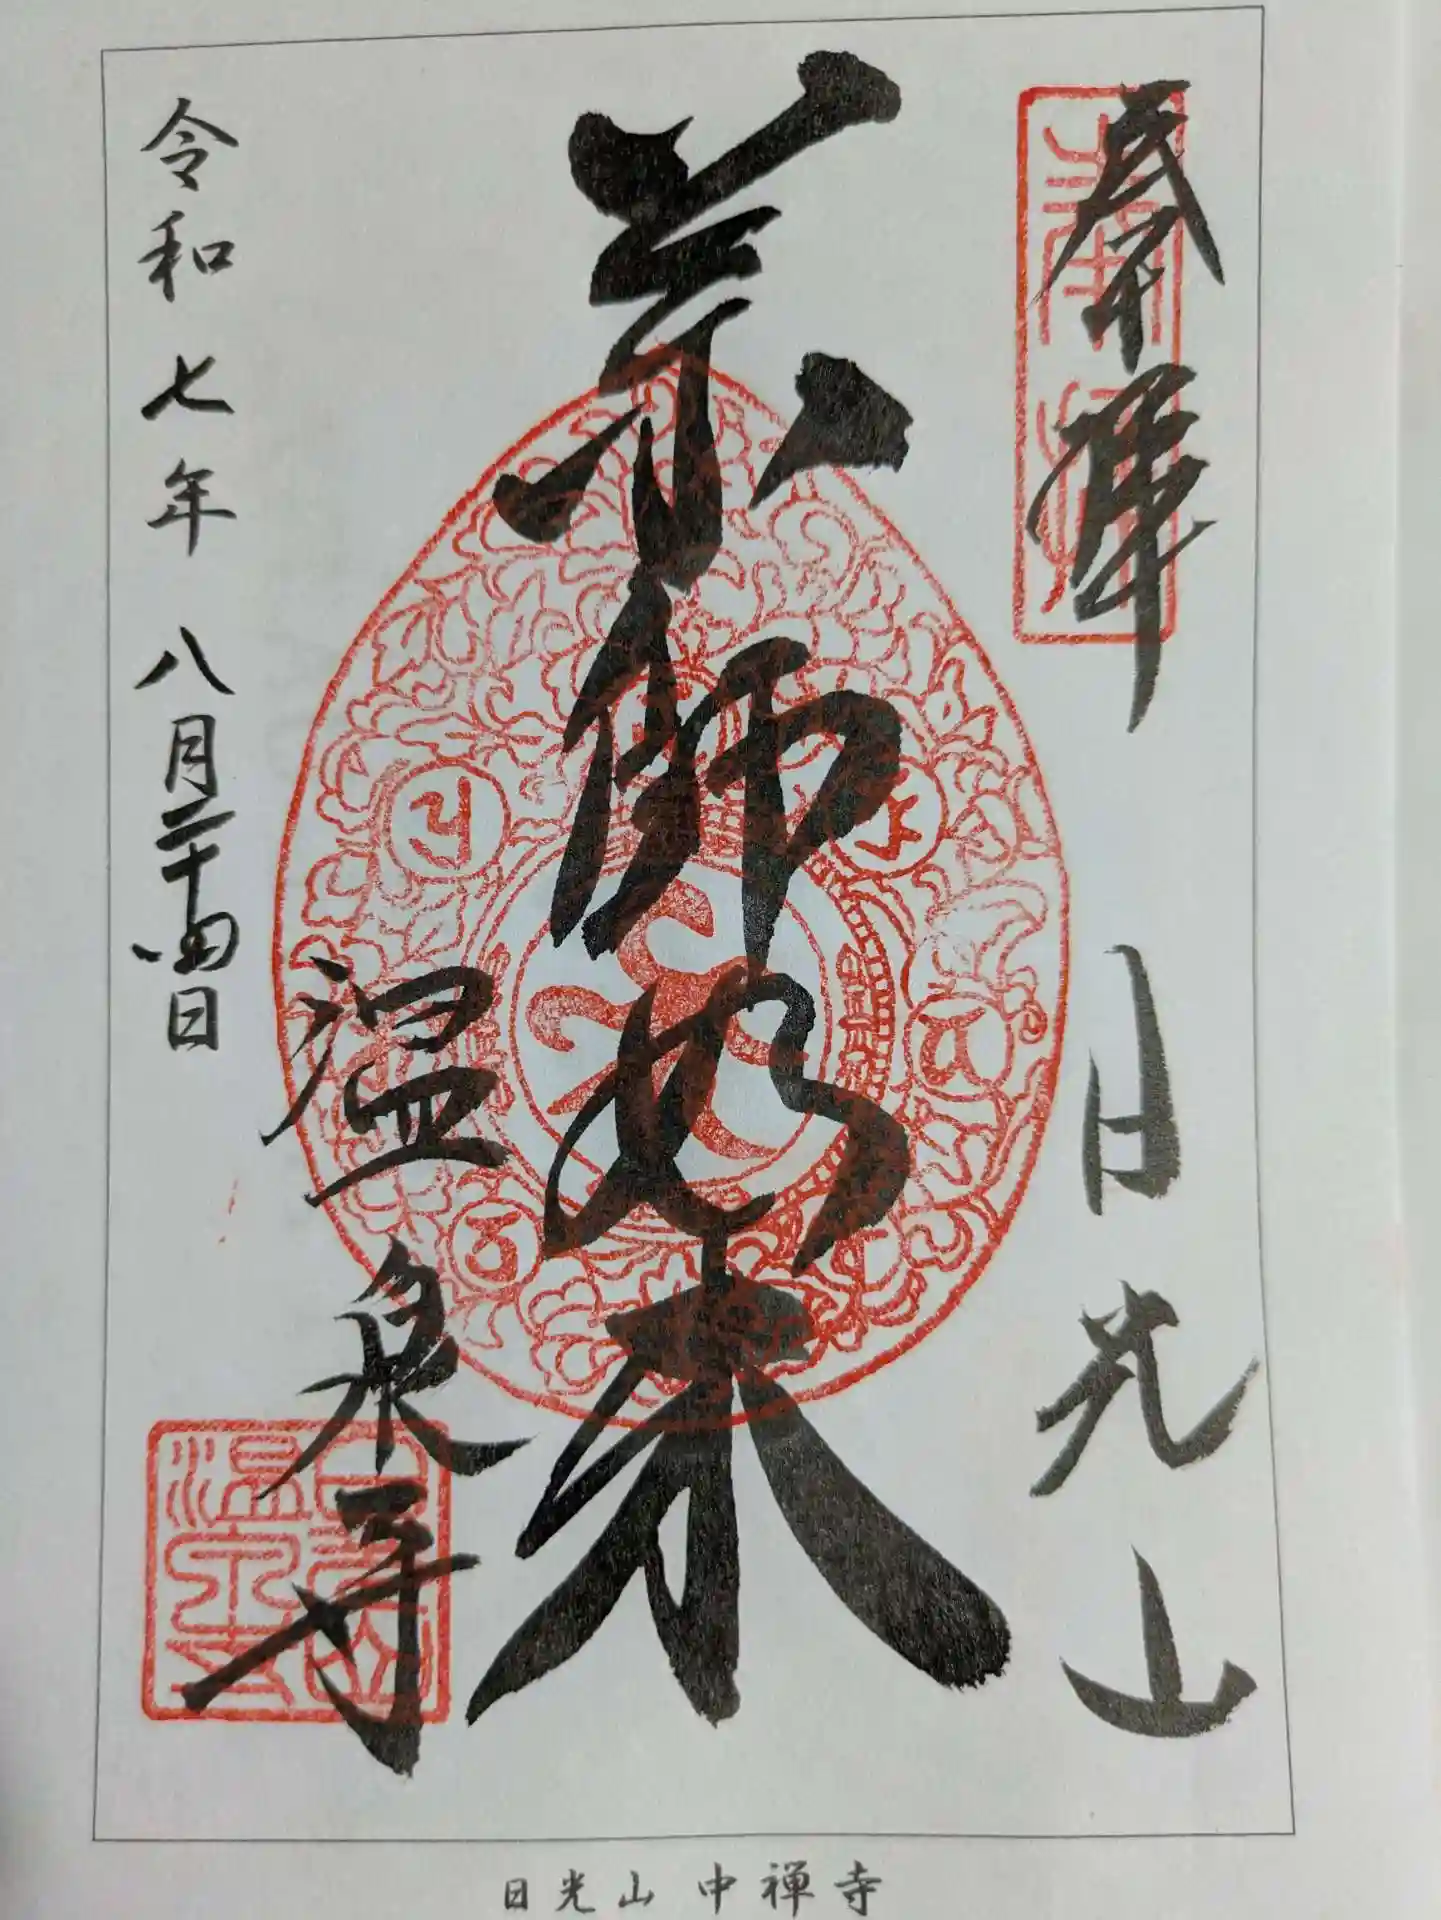 奉拝
日光山
薬師如来
温泉寺
令和七年 八月二十四日
日光山温泉寺
日光山 中禅寺